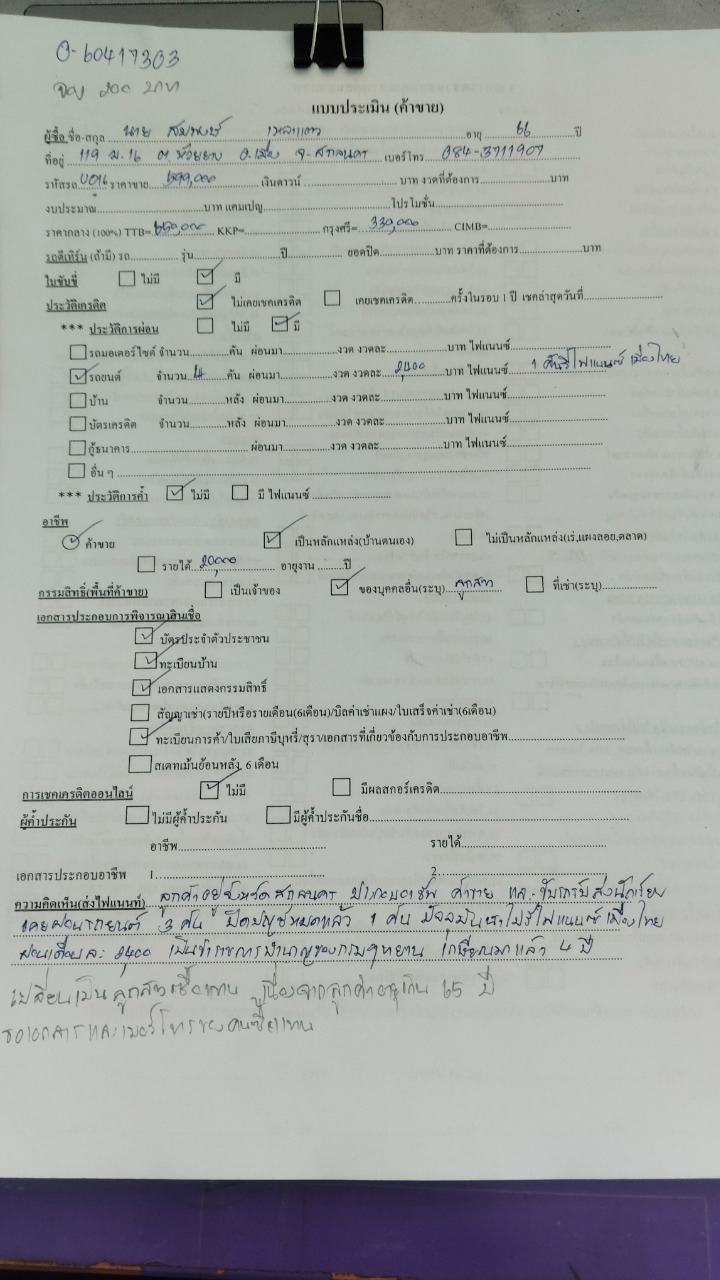 0-60417303
จอง 200 บาท
แบบประเมิน (ค้าขาย)
ผู้ซื้อ ชื่อ-สกุล นาย อายุ 66 ปี
ที่อยู่ 119 ม.16 ต.ห้วยยาง อ.เมือง จ.สกลนคร เบอร์โทร 084-3711907
รหัสรถ U016 ราคาขาย 399,000 เงินดาวน์ บาท งวดที่ต้องการ บาท
งบประมาณ บาท แคมเปญ โปรโมชั่น
ราคากลาง (100%) TTB= KKP= กรุงศรี= 330,000 CIMB=
รถตีเทิร์น (ถ้ามี) รถ รุ่น ปี ยอดปิด บาท ราคาที่ต้องการ บาท
ใบขับขี่ ไม่มี มี
ประวัติเครดิต ไม่เคยเชคเครดิต เคยเชคเครดิต ครั้งในรอบ 1 ปี เชคล่าสุดวันที่
*** ประวัติการผ่อน ไม่มี มี
รถมอเตอร์ไซด์ จำนวน คัน ผ่อนมา งวด งวดละ บาท ไฟแนนซ์
รถยนต์ จำนวน 4 คัน ผ่อนมา งวด งวดละ 2,400 บาท ไฟแนนซ์ 1 คันที่ไฟแนนซ์ เมืองไทย
บ้าน จำนวน หลัง ผ่อนมา งวด งวดละ บาท ไฟแนนซ์
บัตรเครดิต จำนวน หลัง ผ่อนมา งวด งวดละ บาท ไฟแนนซ์
กู้ธนาคาร ผ่อนมา งวด งวดละ บาท ไฟแนนซ์
อื่น ๆ
*** ประวัติการค้ำ ไม่มี มี ไฟแนนซ์
อาชีพ
ค้าขาย เป็นหลักแหล่ง(บ้านตนเอง) ไม่เป็นหลักแหล่ง(เร่,แผงลอย,ตลาด)
รายได้ 20,000 อายุงาน ปี
กรรมสิทธิ์(พื้นที่ค้าขาย) เป็นเจ้าของ ของบุคคลอื่น(ระบุ) ลูกสาว ที่เช่า(ระบุ)
เอกสารประกอบการพิจารณาสินเชื่อ
บัตรประจำตัวประชาชน
ทะเบียนบ้าน
เอกสารแสดงกรรมสิทธิ์
สัญญาเช่า(รายปีหรือรายเดือน(6เดือน)/บิลค่าเช่าแผง/ใบเสร็จค่าเช่า(6เดือน)
ทะเบียนการค้า/ใบเสียภาษีบุหรี่/สุรา/เอกสารที่เกี่ยวข้องกับการประกอบอาชีพ
สเตทเม้นย้อนหลัง 6 เดือน
การเชคเครดิตออนไลน์ ไม่มี มีผลสกอร์เครดิต
ผู้ค้ำประกัน ไม่มีผู้ค้ำประกัน มีผู้ค้ำประกันชื่อ
อาชีพ รายได้
เอกสารประกอบอาชีพ 1. 2.
ความคิดเห็น(ส่งไฟแนนท์) ลูกค้าอยู่จังหวัดสกลนคร ประกอบอาชีพ ค้าขาย และขับรถรับส่งนักเรียน
เคยผ่อนรถยนต์ 3 คัน ปิดบัญชีหมดแล้ว 1 คัน ปัจจุบัน ไฟแนนซ์ เมืองไทย
ผ่อนเดือนละ 2,400 เป็นข้าราชการบำนาญของกรมอุทยาน เกษียณมาแล้ว 4 ปี
เปลี่ยนเป็น ลูกสาวซื้อแทน เนื่องจากลูกค้าอายุเกิน 65 ปี
ขอเอกสารและเบอร์โทรของคนซื้อแทน